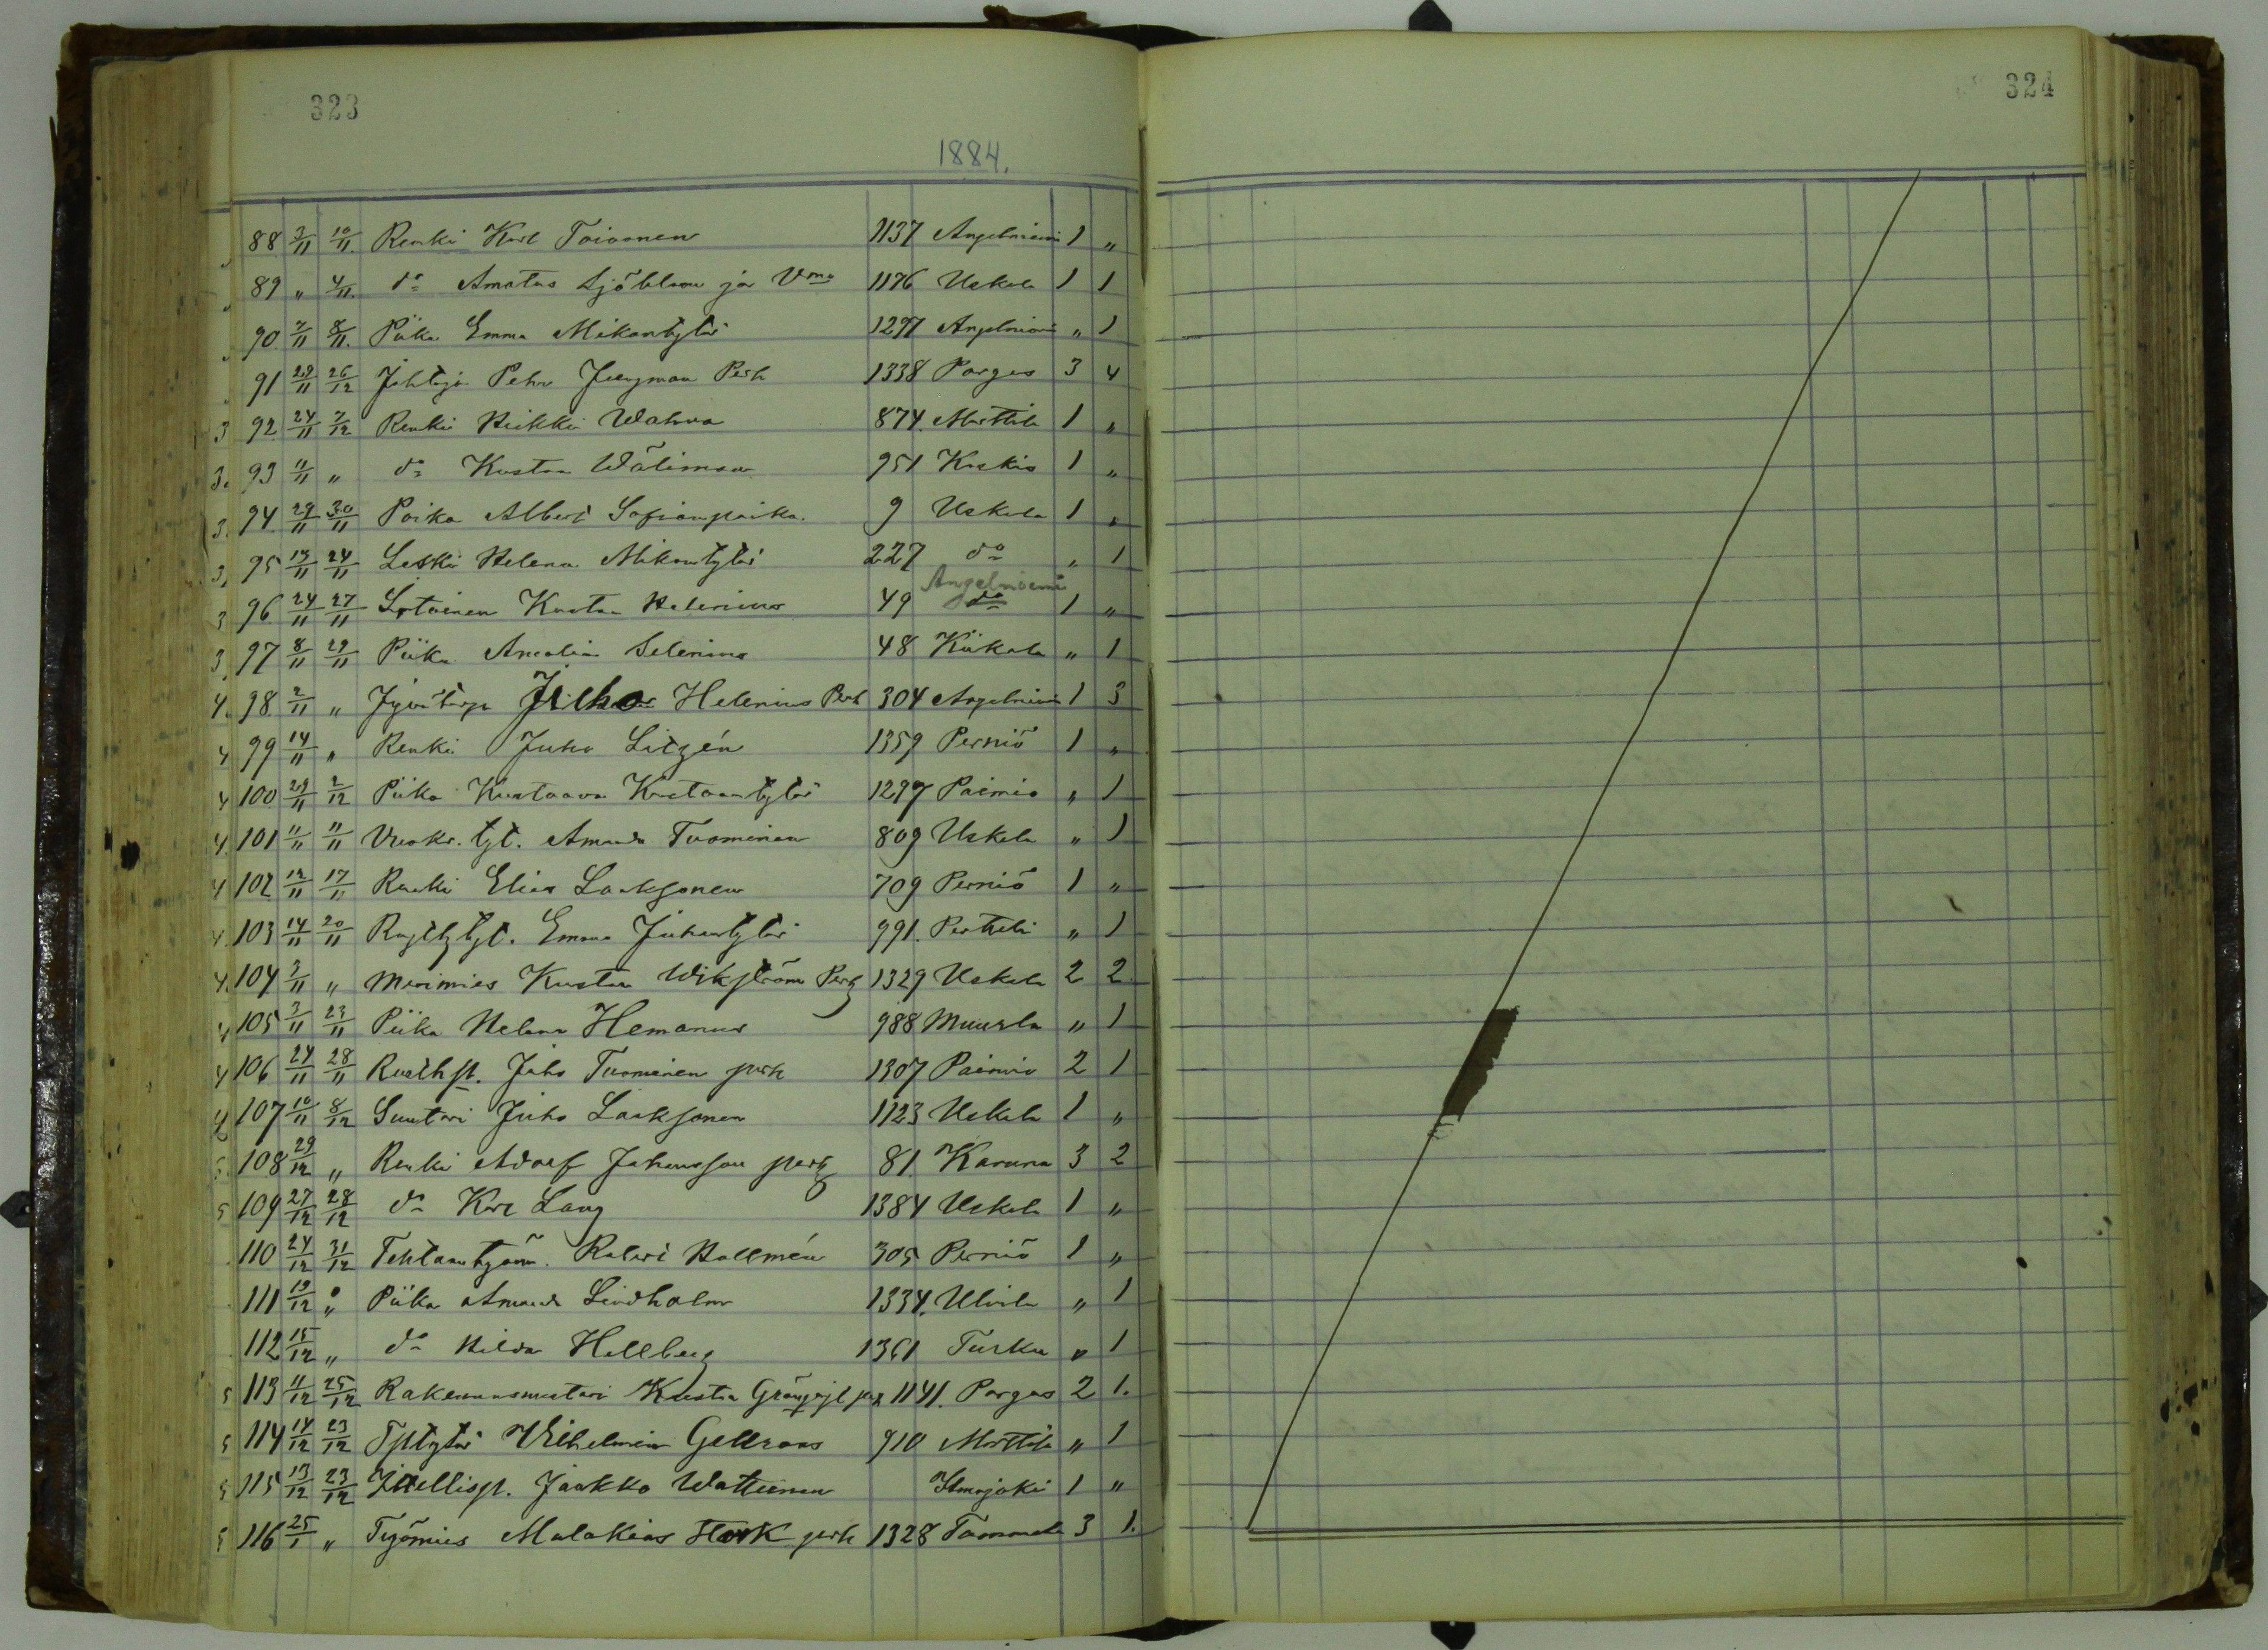 323
324
1884.
88 3/11 10/11. Renki Karl Toivonen 1137 Angelniemi 1 "
89 " 4/11. do Amatus Sjöblom ja Vmo 1176 Uskela 1 1
90. 7/11 8/11. Piika Emma Mikontytär 1297 Angelniemi " 1
91 29/11 26/12 Johtaja Pehr Jungman Perh 1338 Pargas 3 4
3 92 24/11 7/12 Renki Heikki Wahva 874. Marttila 1 "
3. 93 11/11 " do Kustaa Wälimaa 951 Koskis 1 "
3. 94 29/11 30/11 Poika Albert Sofianpoika. 9 Uskela 1 "
3, 95 13/11 24/11 Leski Helena Mikontytär 227 do " 1
Angelniemi
3 96 24/11 27/11 Kustaa Helenius 49 do 1 "
3, 97 8/11 29/11 Piika Amalia Selenius 48 Kiikala " 1
4. 98. 2/11 " Juho Helenius Perh 304 Angelniemi 1 3
4 99 14/11 " Renki Juho Litzén 1359 Perniö 1 "
4 100 29/11 2/12 Piika Kustaava Kustaantytär 1297 Paimio " 1
4. 101 11/11 11/11 Vuokr. tyt. Amanda Tuominen 809 Uskela " 1
4 102 12/11 17/11 Renki Elias Laaksonen 709 Perniö 1 "
4. 103 14/11 20/11 Emma Juhantytär 991. Pertteli " 1
4. 104 3/11 " Merimies Kustaa Wikström Perh 1329 Uskela 2 2
4 105 3/11 23/11 Piika Helena Hemanus 988 Muurla " 1
4 106 24/11 28/11 Juho Tuominen perh 1307 Paimio 2 1
4 107 10/11 8/12 Suutari Juho Laaksonen 1123 Uskela 1 "
5. 108 29/12 " Renki Adolf Johansson perh 81. Karuna 3 2
5 109 27/12 28/12 do Karl Lang 1384 Uskela 1 "
110 24/12 31/12 Tehtaantyöm. Robert Hallmén 305 Perniö 1 "
111 19/12 " Piika Amanda Lindholm 1334. Ulvila " 1
112 15/12 " do Hilda Hellberg 1361 Turku " 1
5 113 11/12 25/12 Rakennusmestari Kustaa perh 1141. Pargas 2 1.
5 114 14/12 23/12 Wilhelmina Gellroos 910 Marttila " 1
5 115 13/12 23/12 Itsellisp. Jaakko Wattunen Ilmajoki 1 "
5 116 25/1 " Työmies Malakias Hork perh 1328 Tammela 3 1.